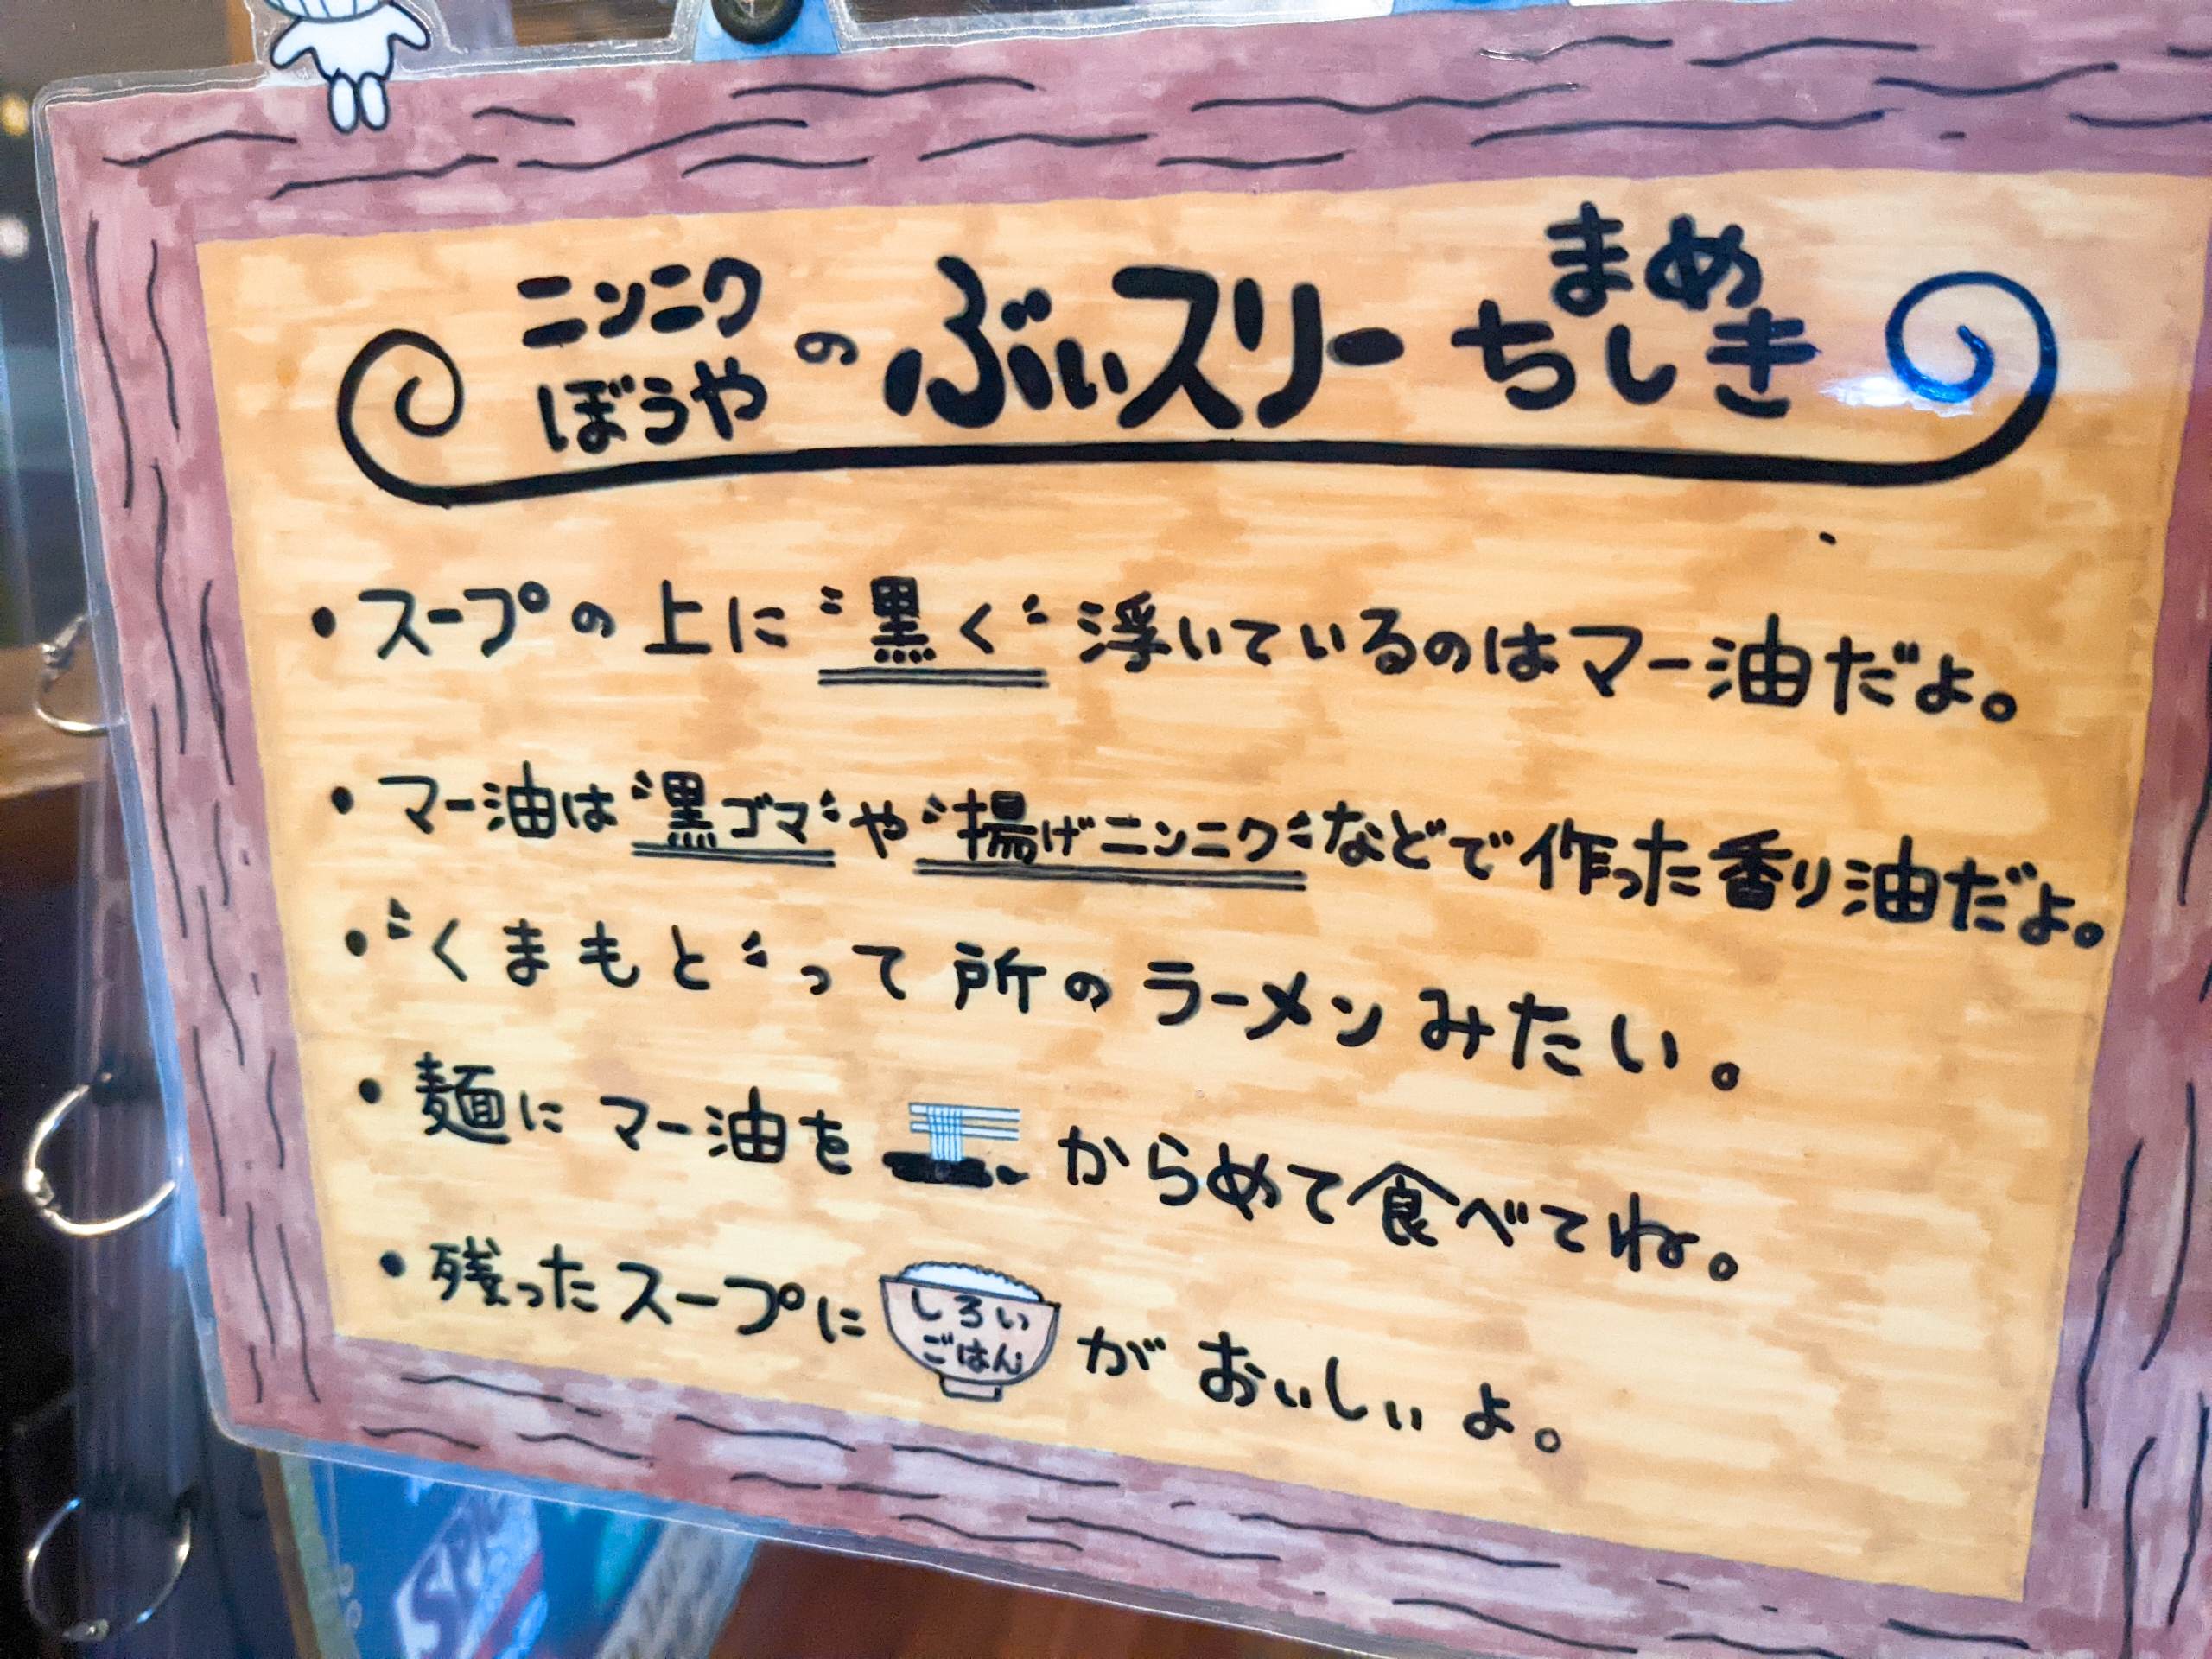 ニンニク
ぼうや
の
ぶぃスリー
まめ
ちしき
・スープの上に〝黒く〟浮いているのはマー油だよ。
・マー油は〝黒ゴマ〟や〝揚げニンニク〟などで作った香り油だよ。
・〝くまもと〟って所のラーメンみたい。
・麺にマー油をからめて食べてね。
・残ったスープに
しろい
ごはん
がおいしぃよ。